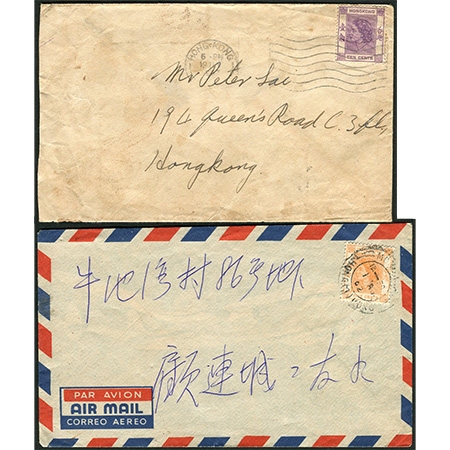 HONG KONG
6 - PM
HONGKONG
TEN CENTS
Mr Peter Lai
194 Queen's Road C. 3 flr,
Hongkong.
牛池湾村86号地下
顧連城
PAR AVION
AIR MAIL
CORREO AEREO